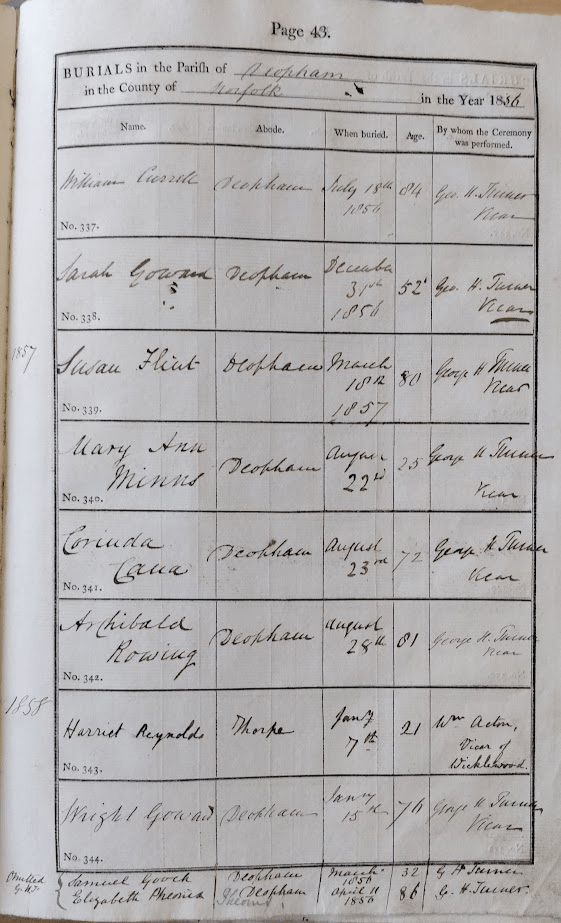 Page 43.
BURIALS in the Parish of Deopham
in the County of Norfolk in the Year 1856
Name. Abode. When buried. Age. By whom the Ceremony was performed.
William Deopham July 18th 84 Geo. H. Turner
1856 Vicar
No. 337.
Sarah Goward Deopham December 52 Geo. H. Turner
31st Vicar
1856
No. 338.
1857
Susan Flint Deopham March 80 George H Turner
18th Vicar
1857
No. 339.
Mary Ann Deopham August 25 George H Turner
Minns 22nd Vicar
No. 340.
Corinda Deopham August 72 George H. Turner
Cana 23rd Vicar
No. 341.
Archibald Deopham August 81 George H. Turner
Rowing 28th Vicar
No. 342.
1858
Harriet Reynolds Thorpe Jany 21 Wm Acton,
7th Vicar of
Wicklewood.
No. 343.
Wright Goward Deopham Jany 76 George H Turner
15th Vicar
No. 344.
Omitted Samuel Gooch Deopham March 32 G H Turner
G.H.T. 1856
Elizabeth Deopham April 11 86 G. H. Turner
1856